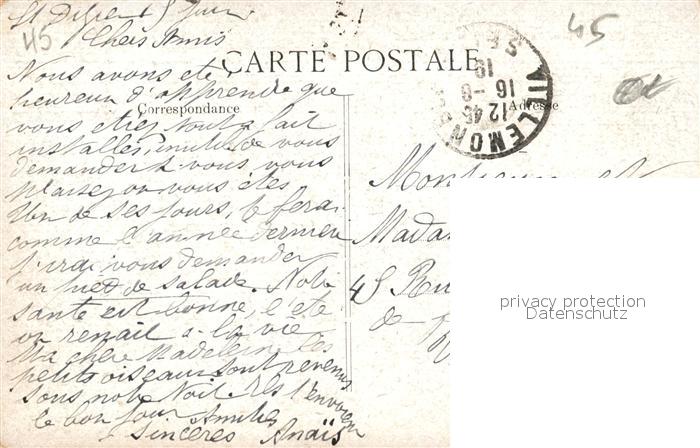 45
45
Chers Amis
CARTE POSTALE
Correspondance
Adresse
Nous avons ete
heureux d'apprendre que
vous etiez tout a fait
installer, inutile de vous
demander si vous vous
plaisez ou vous êtes
Un de ses jours, je ferai
comme l'année derniere
j'irai vous demander
un pied de salade. Notre
sante est bonne, l'été
on renait a la vie
Ma chere Madeleine les
petits oiseaux sont revenus
sous notre toit. Ils t'envoient
le bon jour Amities
Sincères Anaïs
Monsieur et
Madam
45 Ru
de
12 45
16 -6
19
privacy protection
Datenschutz